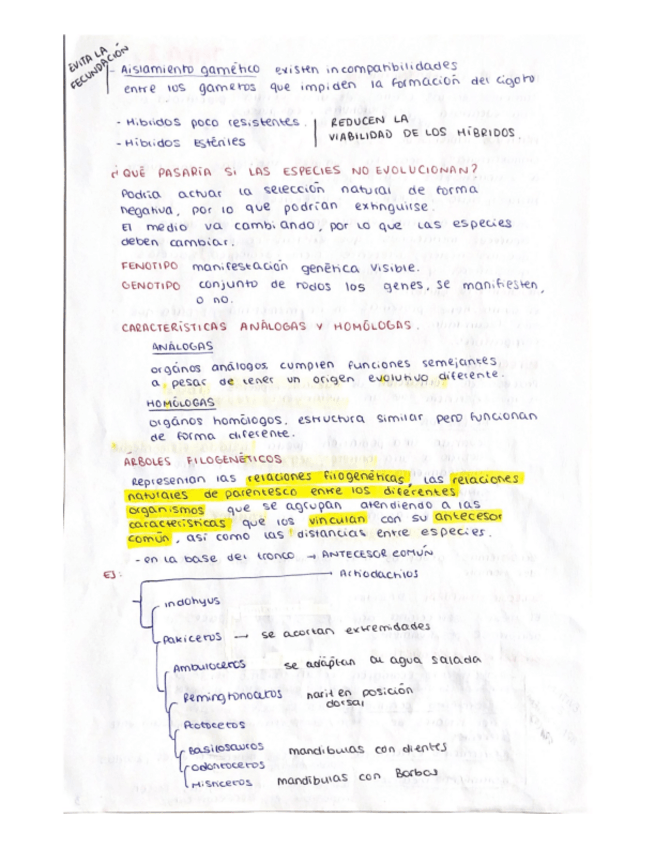 EVITA LA
FECUNDACIÓN
- Aislamiento gamético existen incompatibilidades
entre los gametos que impiden la formación del cigoto
- Híbridos poco resistentes.
- Híbridos estériles
REDUCEN LA
VIABILIDAD DE LOS HÍBRIDOS.
¿QUÉ PASARÍA SI LAS ESPECIES NO EVOLUCIONAN?
Podría actuar la selección natural de forma
negativa, por lo que podrían extinguirse.
El medio va cambiando, por lo que las especies
deben cambiar.
FENOTIPO manifestación genética visible.
GENOTIPO conjunto de rodos los genes, se manifiesten,
o no.
CARACTERÍSTICAS ANÁLOGAS Y HOMÓLOGAS.
ANÁLOGAS
orgános análogos cumplen funciones semejantes
a pesar de tener un origen evolutivo diferente.
HOMÓLOGAS
orgános homólogos, estructura similar pero funcionan
de forma diferente.
ÁRBOLES FILOGENÉTICOS
Representan las relaciones filogenéticas, las relaciones
naturales de parentesco entre los diferentes
organismos que se agrupan atendiendo a las
características que los vinculan con su antecesor
común, así como las distancias entre especies.
- en la base del tronco → ANTECESOR COMÚN
EJ:
Artiodachios
Indohyus
Pakiceros → se acortan extremidades
Ambuloceros se adaptan au agua salada
Remingtonoceros nariz en posición
dorsal
Protoceros
Basilosauros mandíbulas con dientes
Odontoceros
Misticeros mandíbulas con Barbas